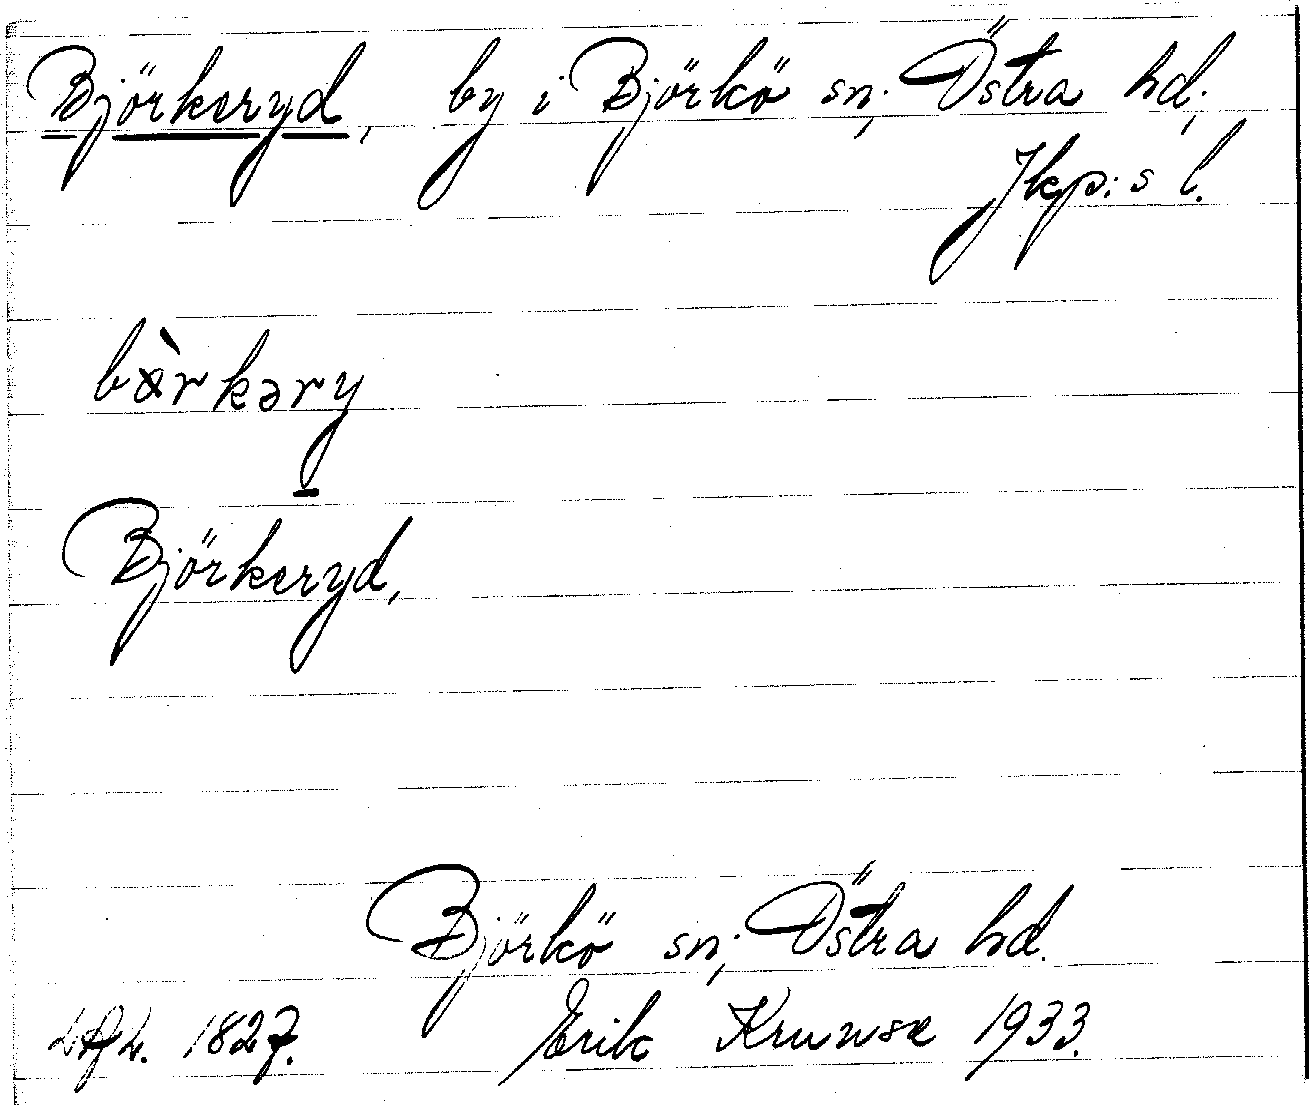 Björkeryd, by i Björkö sn; Östra hd.,
Jkp:s l.
bæ̀rkəry
Björkeryd,
Björkö sn; Östra hd.
1827. Erik Kruuse 1933.